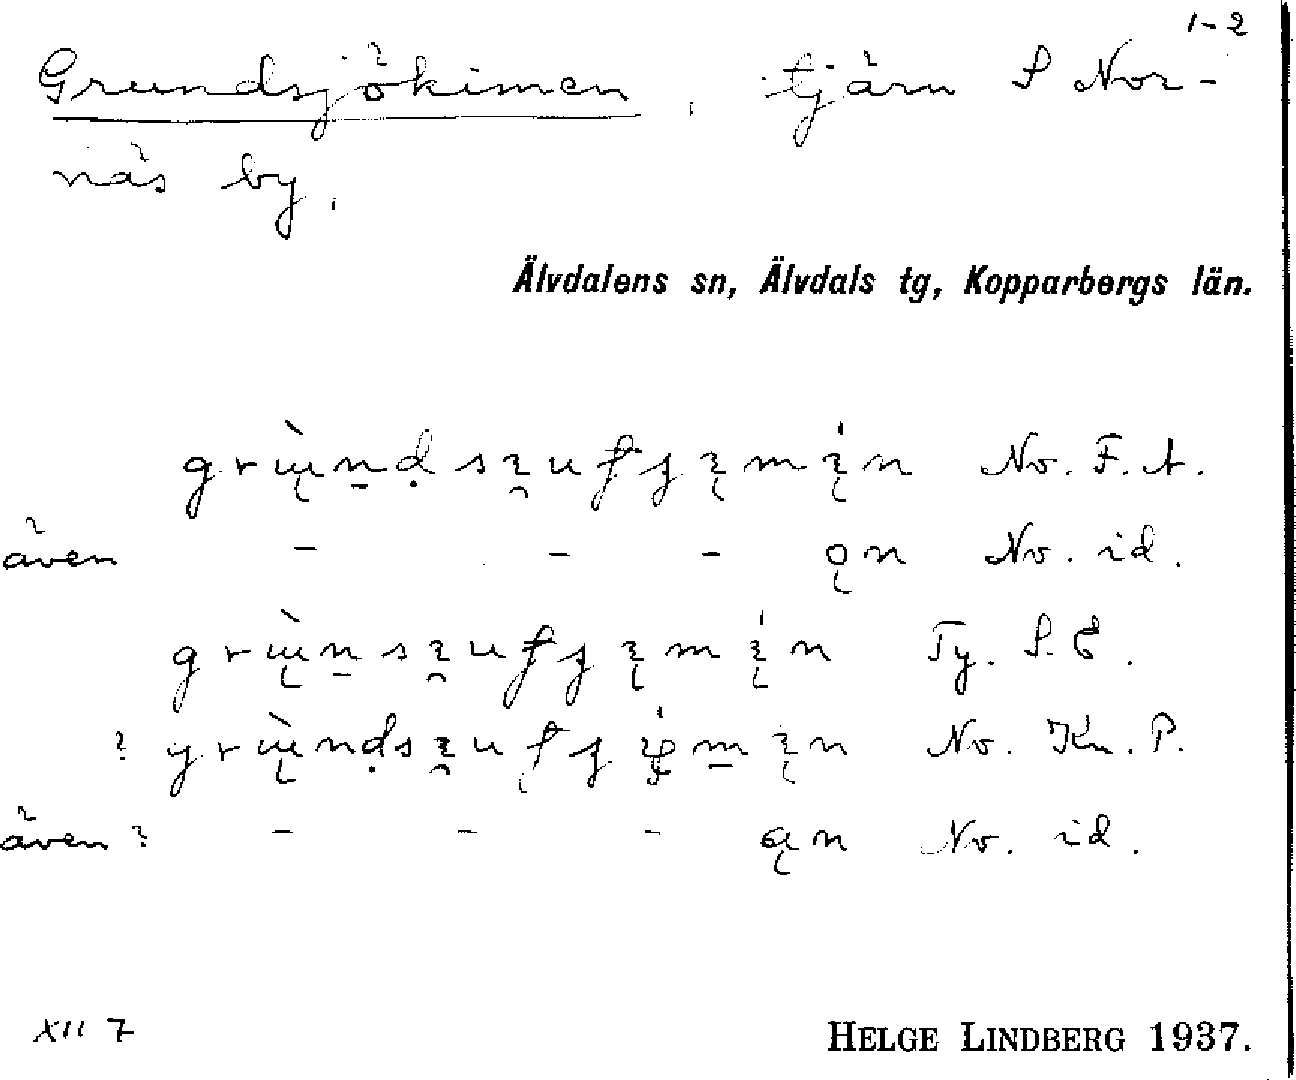 1-2
Grundsjökimen, tjärn S Nor-
näs by.
Älvdalens sn, Älvdals tg, Kopparbergs län.
No. F. A.
även - - - ǫn No. id.
Ty. S. E.
? No. Kn. P.
även ? - - - ąn No. id.
XII 7
HELGE LINDBERG 1937.